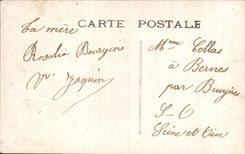 CARTE POSTALE
Ta mère
Rosalie Bourgeois
Vve Jaquin
Mme Collas
à Bernes
par Bruyères
S-O
Seine et Oise